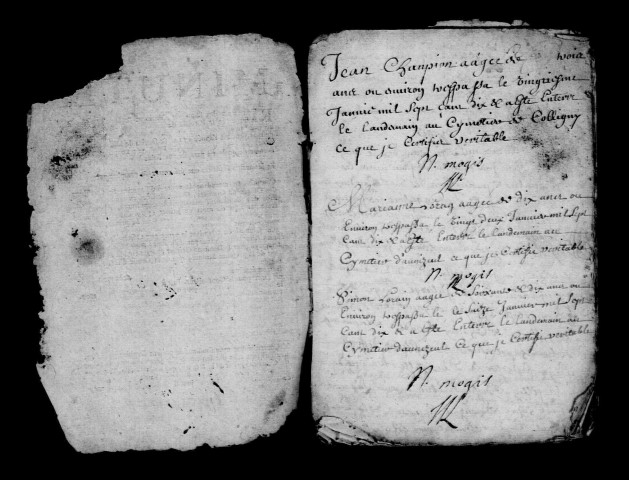 Jean Chanpion aagee de trois
ans ou environ trespassa le vingtiesme
Janvie mil sept cent dix et a este enterre
le landemain au Cymetier de Colligny
ce que je certifie veritable
N. mogis
Marianne Lorain aagee de dix ans ou
Environ trespassa le vingt deux Janvier mil sept
cent dix et a este enterre le landemain au
Cymetier d'aunizeul ce que je certifie veritable
N. mogis
Simon Lorain aagee de soixante et dix ans ou
Environ trespassa le seize Janvier mil sept
cent dix et a este enterre le landemain au
Cymetier daunizeul ce que je certifie veritable
N. mogis